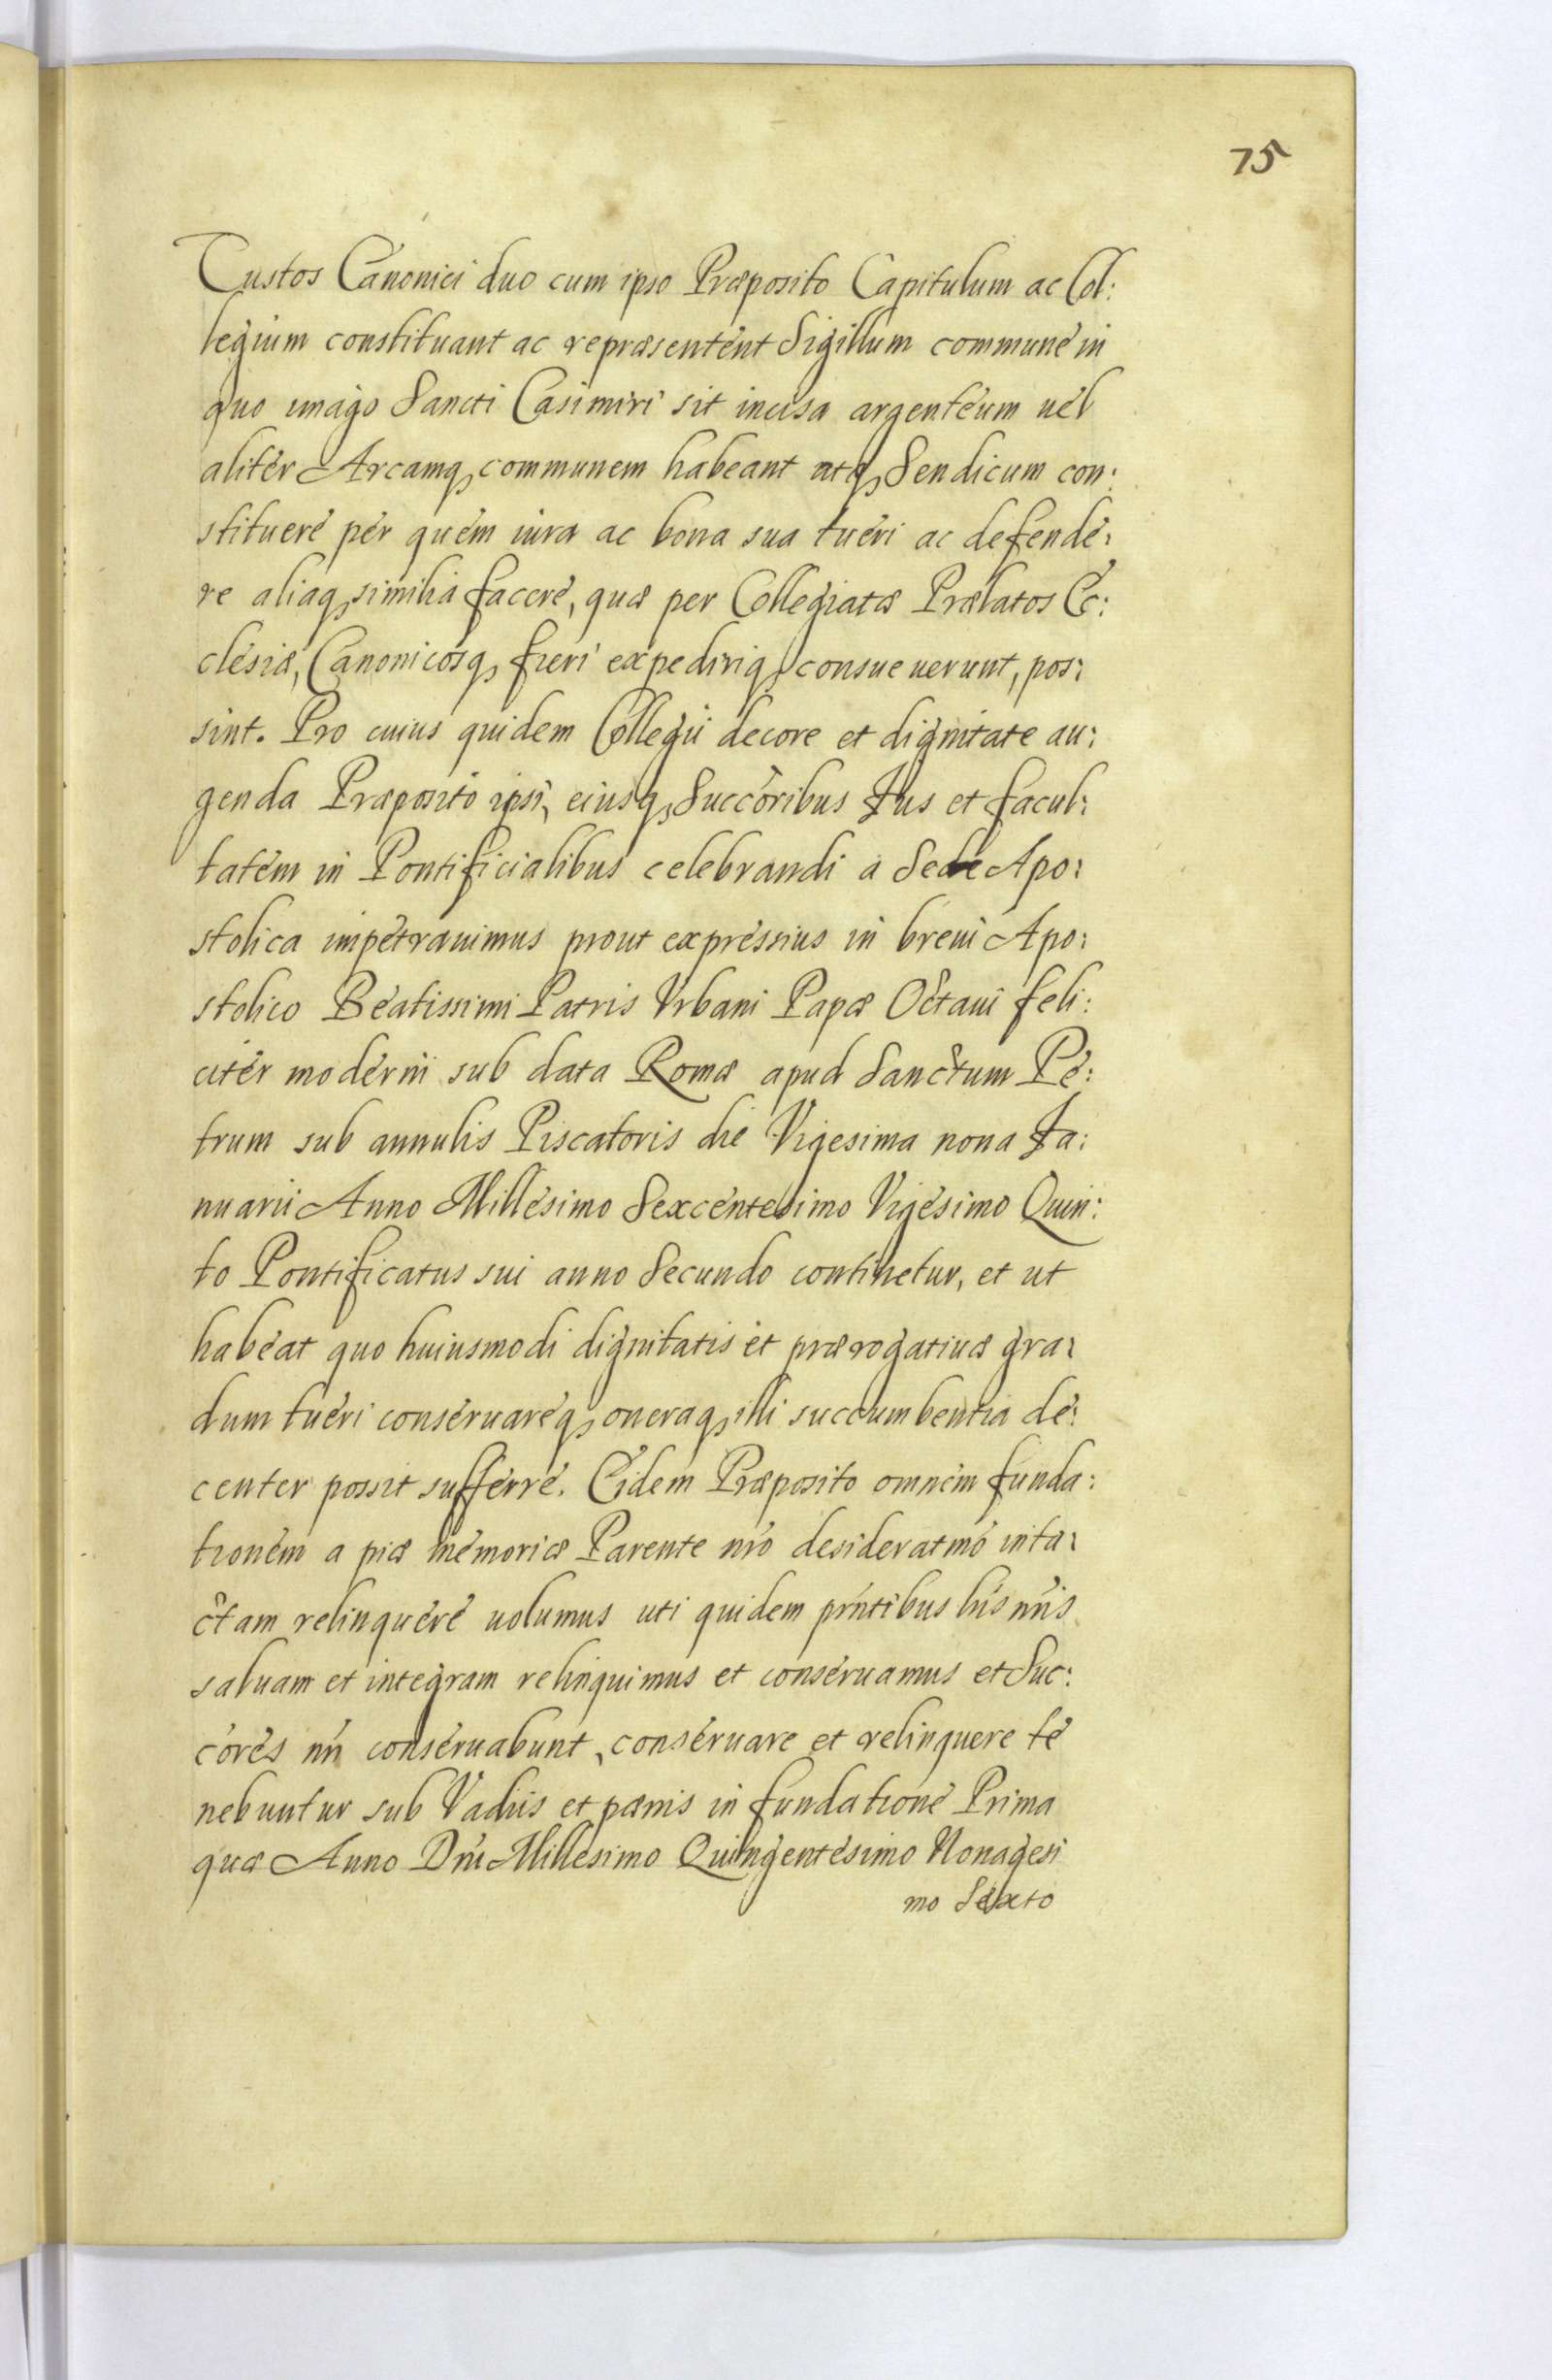 75
Custos Canonici duo cum ipso Præposito Capitulum ac Col:
legium constituant ac repræsentent Sigillum commune in
quo imago Sancti Casimiri sit incisa argenteum uel
aliter Arcamq, communem habeant atq, Sendicum con:
stituere per quem iura ac bona sua tueri ac defende:
re aliaq, similia facere, quæ per Collegiatæ Prælatos Ec:
clesiæ, Canonicosq, fieri expediriq, consueuerunt, pos:
sint. Pro cuius quidem Collegii decore et dignitate au:
genda Præposito ipsi, eiusq, Succòribus Jus et facul:
tatem in Pontificialibus celebrandi a Sede Apo:
stolica impetrauimus prout expressius in breui Apo:
stolico Beatissimi Patris Vrbani Papæ Octaui feli:
citer moderni sub data Romæ apud Sanctum Pe:
trum sub annulis Piscatoris die Vigesima nona Ja:
nuarii Anno Millesimo Sexcentesimo Vigesimo Quin:
to Pontificatus sui anno Secundo continetur, et ut
habeat quo huiusmodi dignitatis et prærogatiuæ gra:
dum tueri conseruareq, oneraq, illi succumbentia de:
center possit sufferre. Eidem Præposito omnem funda:
tionem a piæ memoriæ Parente nró desideratmó inta:
ctam relinquere uolumus uti quidem prńtibus his nrís
saluam et integram relinquimus et conseruamus et Suc:
córes nrí conseruabunt, conseruare et relinquere te
nebuntur sub Vadiis et pænis in fundatione Prima
quæ Anno Dńi Millesimo Quingentesimo Nonagesi
mo Sexto